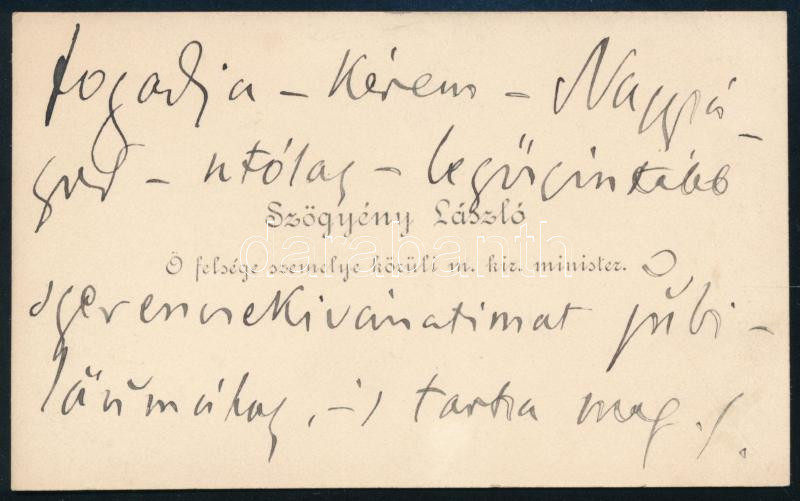 fogadja – kérem – Nagysá-
god – utólag – legőszintébb
Szögyény László
Ő felsége személye körüli m. kir. minister.
szerencsekivánatimat jubi-
láumához, –s tartsa meg./.
darabanth